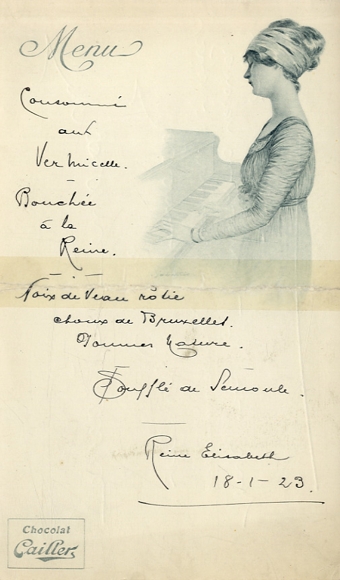 Menu
Consommé
aux
Vermicelle.
Bouchée
à la
Reine.
Noix de Veau rôtie
choux de Bruxelles.
Pommes Nature.
Soufflé de Semoule.
Reine Elisabeth
18-1-23.
Chocolat
Cailler